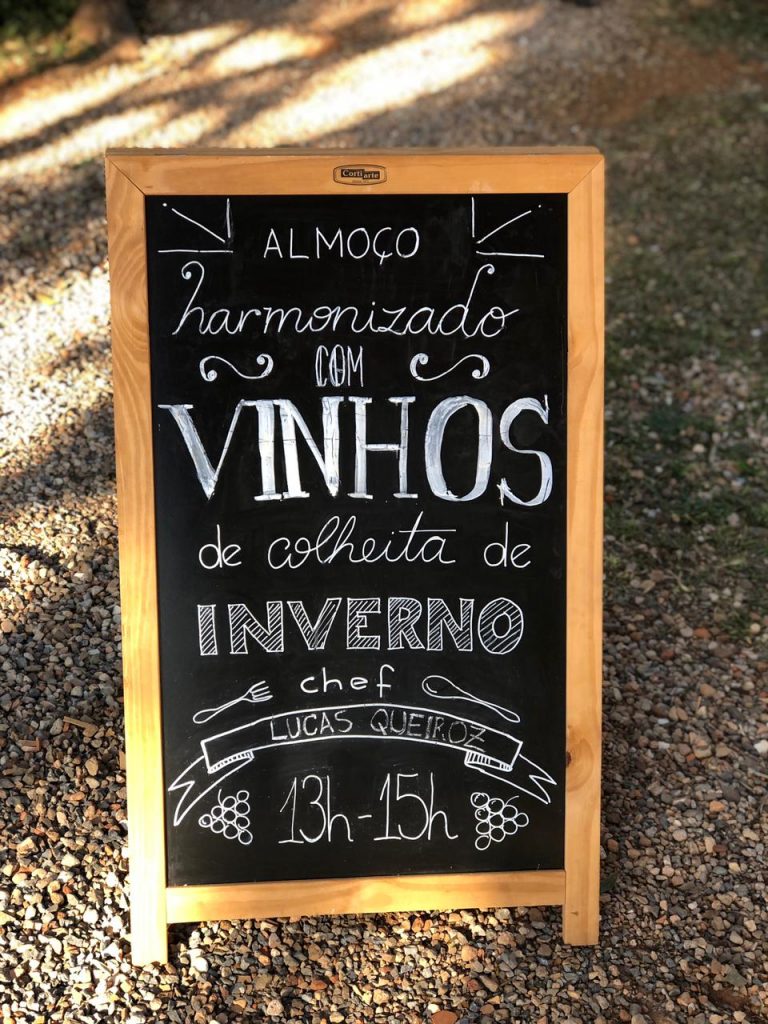 Corti arte
ALMOÇO
harmonizado
COM
VINHOS
de colheita de
INVERNO
chef
LUCAS QUEIROZ
13h-15h